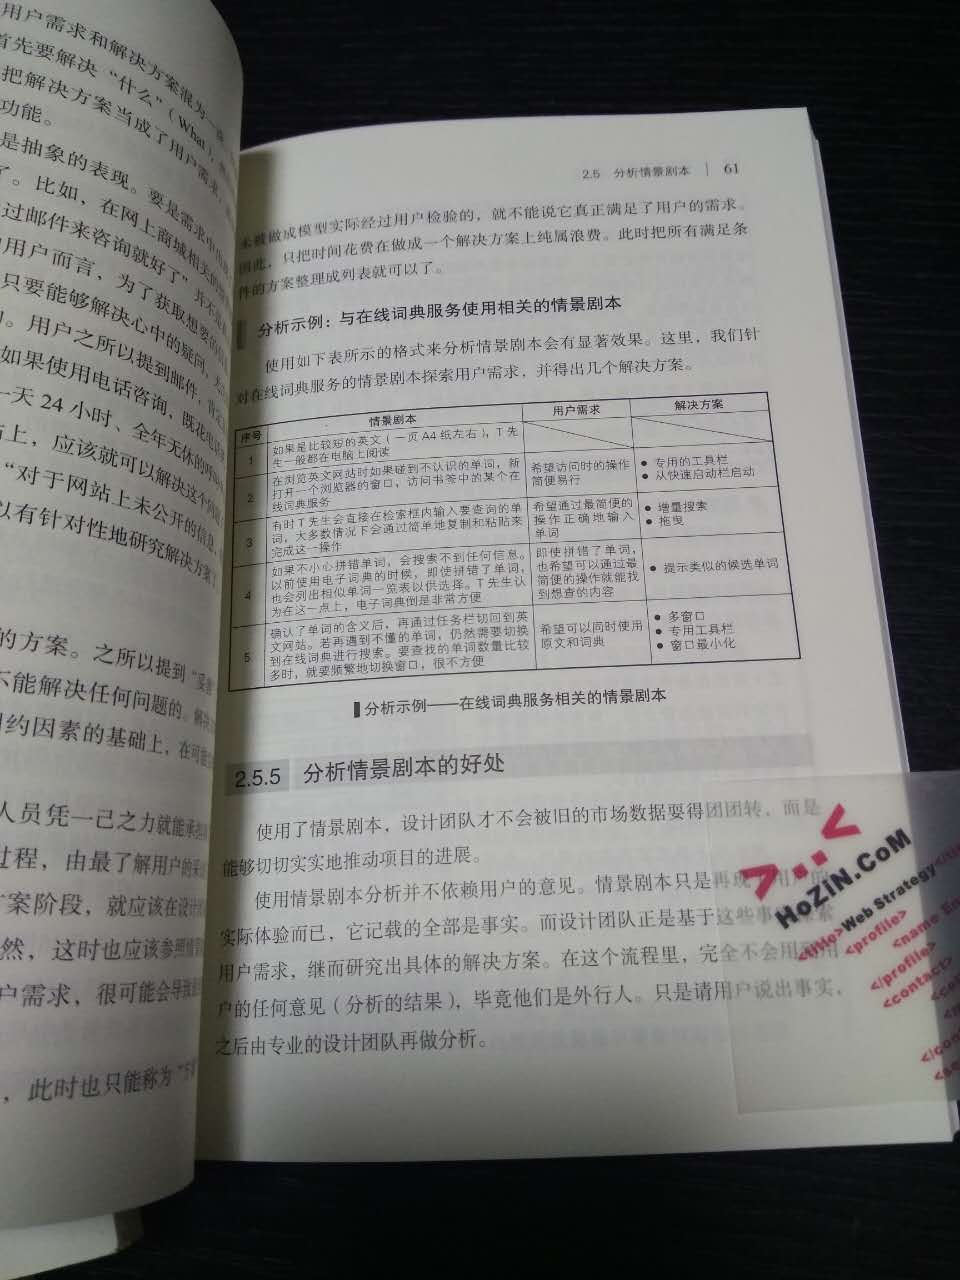 用户需求和解决方案混为一
首先要解决“什么”（What），
把解决方案当成了用户需求，
功能。
是抽象的表现。要是需求中
了。比如，在网上商城相关的
过邮件来咨询就好了”并不是
用户而言，为了获取想要的
只要能够解决心中的疑问，
。用户之所以提到邮件，
如果使用电话咨询，既花电话
一天 24 小时、全年无休的
上，应该就可以解决这个问题
“对于网站上未公开的信息，
以有针对性地研究解决方案了
的方案。之所以提到“妥善
不能解决任何问题的。解决
约因素的基础上，在可能
人员凭一己之力就能承担
过程，由最了解用户的采
方案阶段，就应该在设计
然，这时也应该参照情
户需求，很可能会导致
，此时也只能称为“
2.5 分析情景剧本 61
未被做成模型实际经过用户检验的，就不能说它真正满足了用户的需求。
因此，只把时间花费在做成一个解决方案上纯属浪费。此时把所有满足条
件的方案整理成列表就可以了。
分析示例：与在线词典服务使用相关的情景剧本
使用如下表所示的格式来分析情景剧本会有显著效果。这里，我们针
对在线词典服务的情景剧本探索用户需求，并得出几个解决方案。
序号 情景剧本 用户需求 解决方案
1 如果是比较短的英文（一页A4纸左右），T先
生一般都在电脑上阅读
2 在浏览英文网站时如果碰到不认识的单词，新
打开一个浏览器的窗口，访问书签中的某个在
线词典服务
希望访问时的操作
简便易行
● 专用的工具栏
● 从快速启动栏启动
3 有时T先生会直接在检索框内输入要查询的单
词，大多数情况下会通过简单地复制和粘贴来
完成这一操作
希望通过最简便的
操作正确地输入
单词
● 增量搜索
● 拖曳
4 如果不小心拼错单词，会搜索不到任何信息。
以前使用电子词典的时候，即使拼错了单词，
也会列出相似单词一览表以供选择。T先生认
为在这一点上，电子词典倒是非常方便
即使拼错了单词，
也希望可以通过最
简便的操作就能找
到想查的内容
● 提示类似的候选单词
5 确认了单词的含义后，再通过任务栏切回到英
文网站。若再遇到不懂的单词，仍然需要切换
到在线词典进行搜索。要查找的单词数量比较
多时，就要频繁地切换窗口，很不方便
希望可以同时使用
原文和词典
● 多窗口
● 专用工具栏
● 窗口最小化
分析示例——在线词典服务相关的情景剧本
2.5.5 分析情景剧本的好处
使用了情景剧本，设计团队才不会被旧的市场数据耍得团团转，而是
能够切切实实地推动项目的进展。
使用情景剧本分析并不依赖用户的意见。情景剧本只是再现了用户的
实际体验而已，它记载的全部是事实。而设计团队正是基于这些事实探索
用户需求，继而研究出具体的解决方案。在这个流程里，完全不会用到用
户的任何意见（分析的结果），毕竟他们是外行人。只是请用户说出事实，
之后由专业的设计团队再做分析。
>..<
HoZiN.CoM
<title>Web Strategy
<profile>
<name
</profile>
<contact
</con